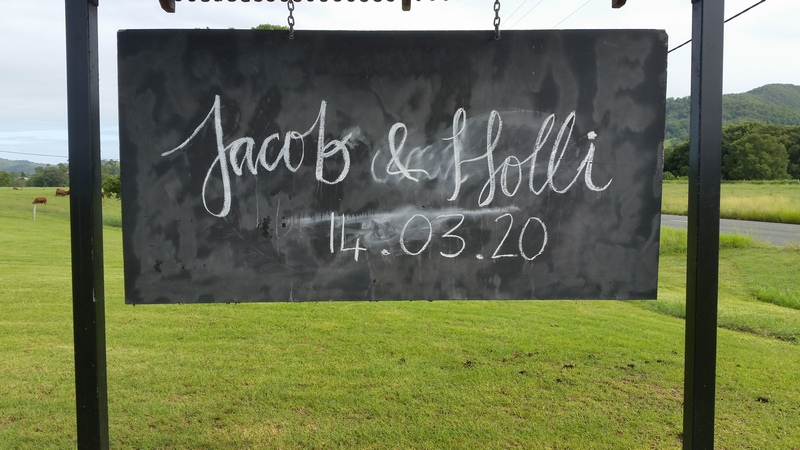 Jacob & Holli
14.03.20